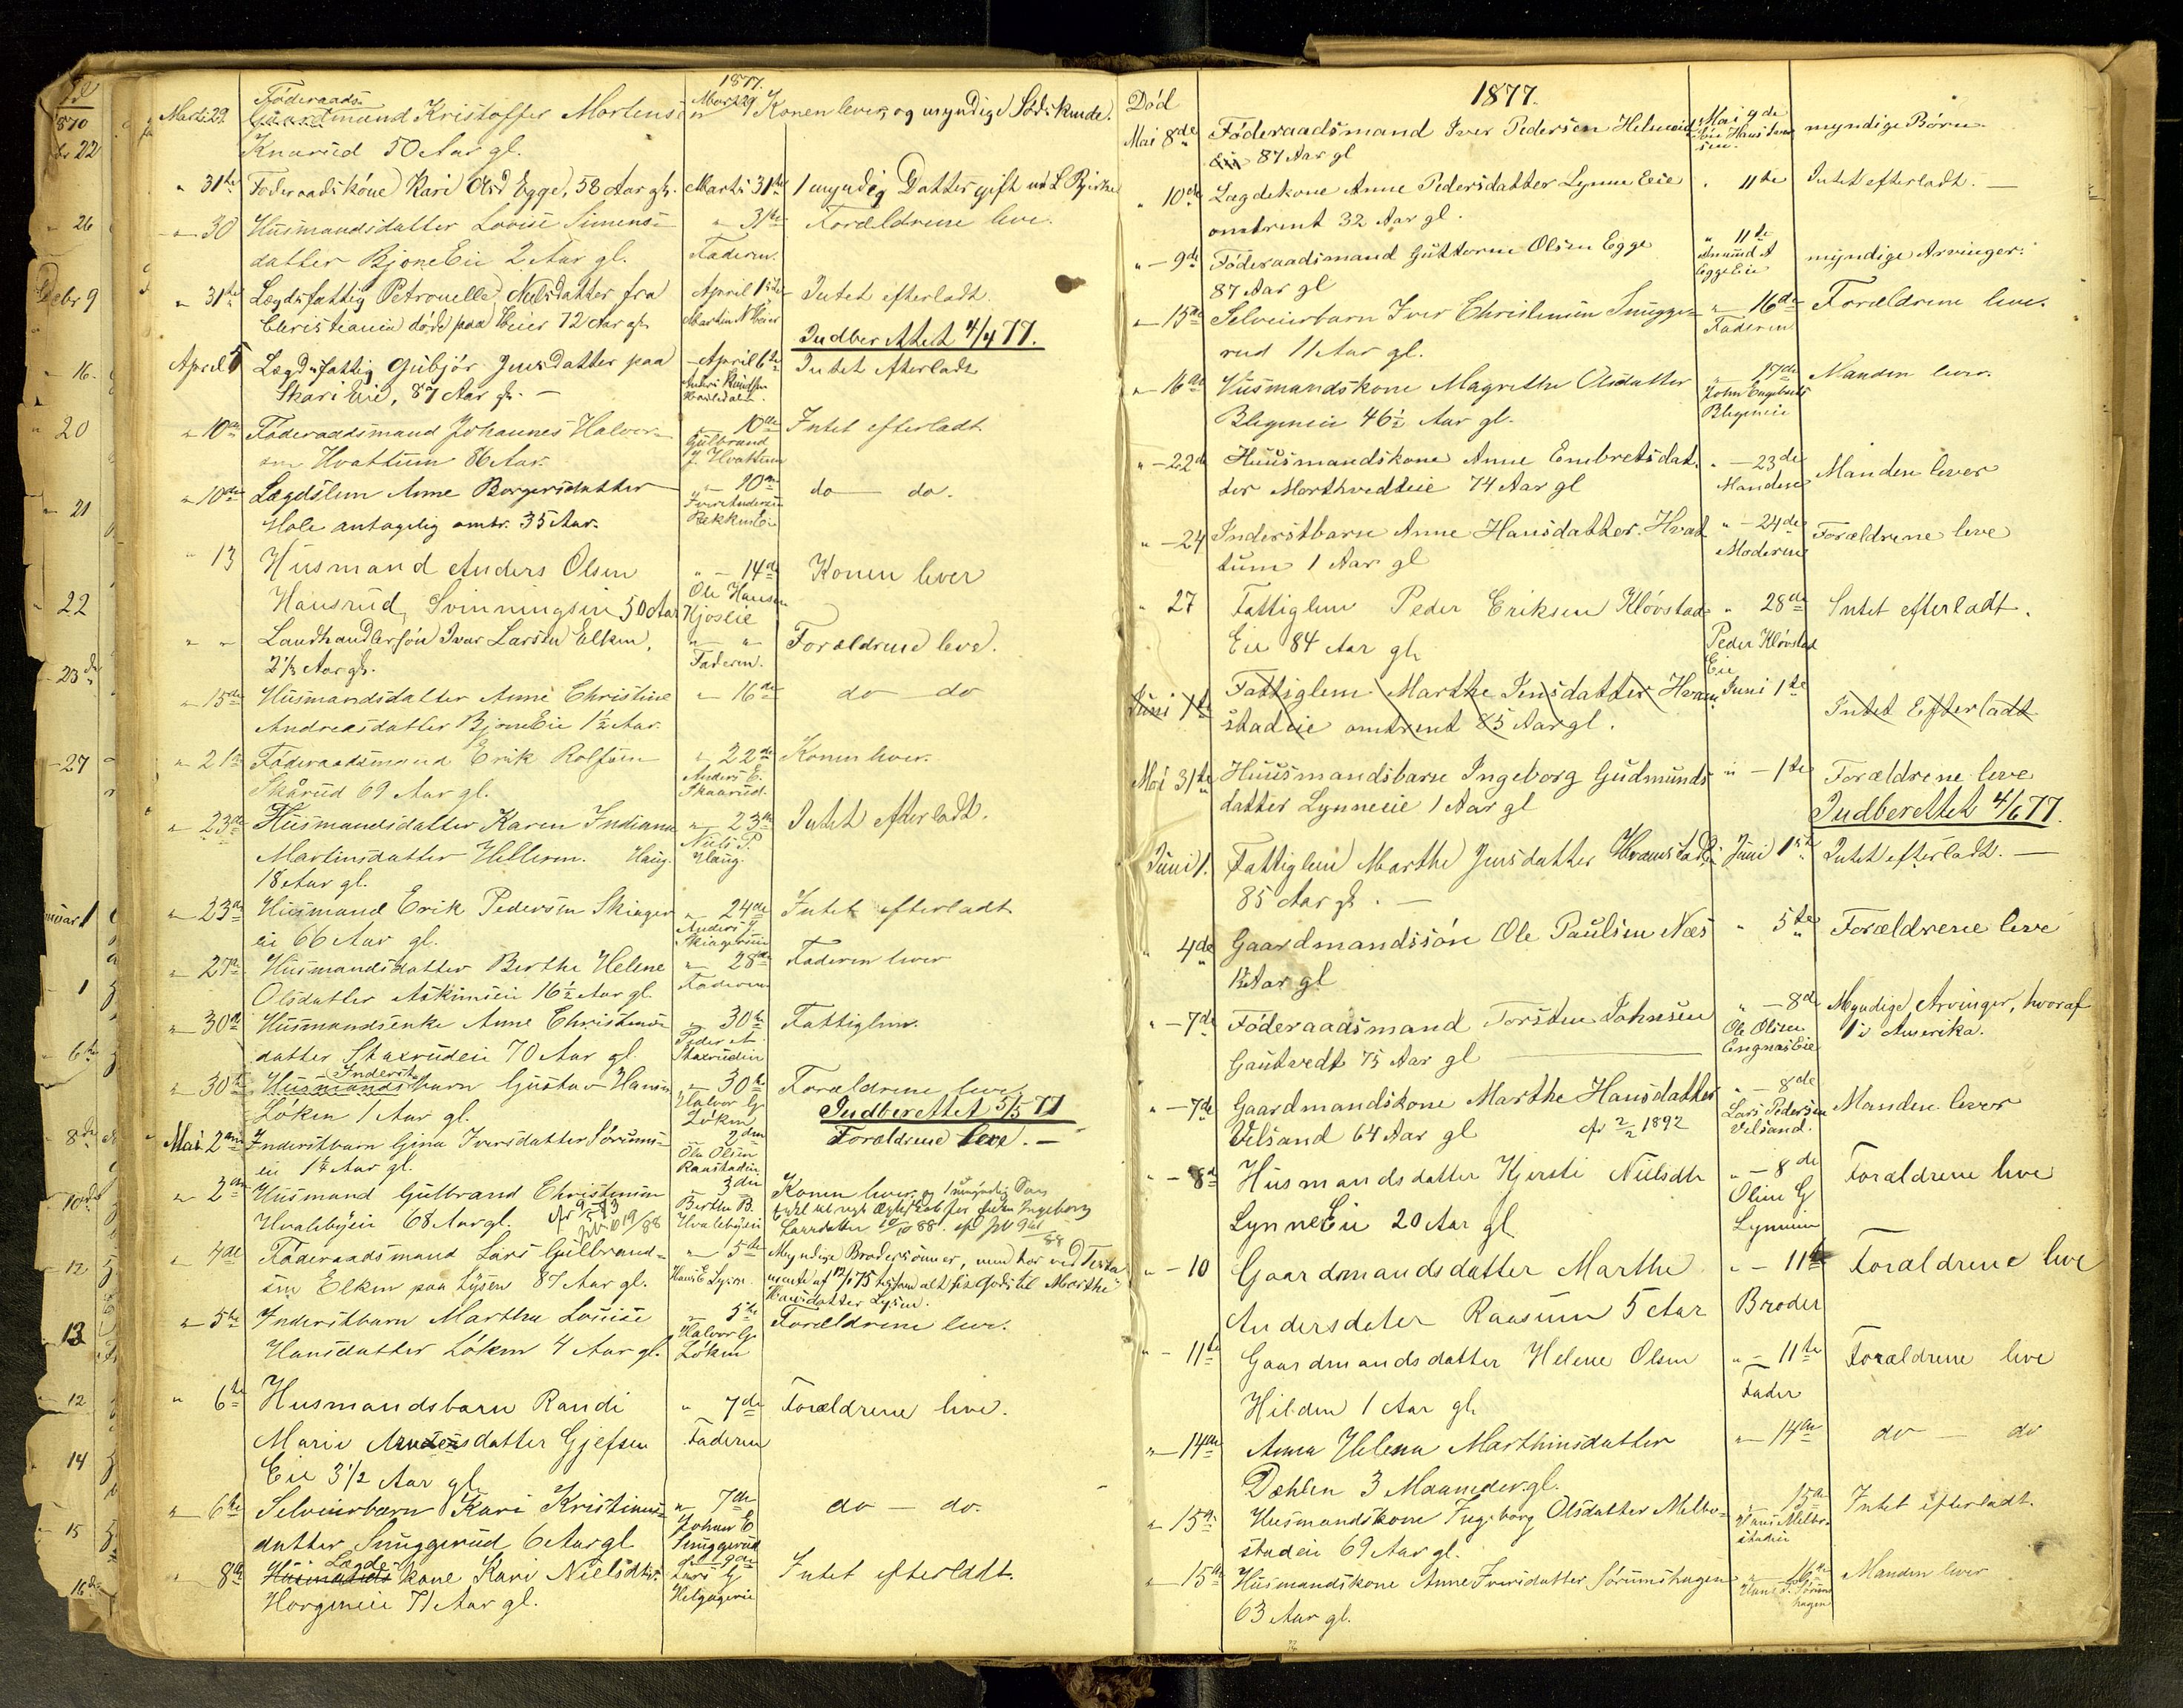 1877.
Marts 29 Föderaads Gaardmand Kristoffer Mortensen Marts 29 Konen lever, og myndige Södskende.
Knarud 50 Aar gl.
" 31te Föderaadskone Kari Olsd Egge, 58 Aar gl. Marts 31te 1 myndig Datter gift
" 30 Husmandsdatter Lovise Simens- " 31te Forældrene leve.
datter BjoneEie 2 Aar gl. Faderen.
" 31te Lægdsfattig Petronelle Nielsdatter fra April 1ste Intet efterladt.
Christiania döde paa 72 Aar gl. Martin N
Indberettet 4/4 77.
April 5 Lægdsfattig Gubjör Jensdatter paa April 6te Intet Efterladt
Skari Eie, 87 Aar gl. –
" 10de Föderaadsmand Johannes Halvor- " 10de Intet efterladt.
sen Hvattum 86 Aar. Gulbrand J. Hvattum
" 10de Lægdslem Anne Borgersdatter " 10de do – do.
Hole antagelig omtr. 35 Aar. Iver Andersen
" 13 Husmand Anders Olsen " – 14de Konen lever
Hansrud, Svinningseie 50 Aar Ole Hansen
" " Landhandlersön Ivar Larsen Elken, " – " Forældrene leve.
2 1/3 Aar gl. Faderen.
" 15de Husmandsdatter Anne Christine " 16de do – do
Andreasdatter BjoneEie 1 1/2 Aar.
" 21de Föderaadsmand Erik Rolfsen " 22de Konen lever.
Skårud 69 Aar gl. Anders E. Skaarud.
" 23de Husmandsdatter Karen Indiana " 23de Intet efterladt.
Martinsdatter Helleren. Haug. Niels P. Haug.
18 Aar gl.
" 23de Husmand Erik Pedersen Skiager " 24de Intet efterladt
eie 66 Aar gl. Anders J. Skiagereie
" 27de Husmandsdatter Berthe Helene " 28de Faderen lever
Olsdatter Askimseie 16 1/2 Aar gl. Faderen
" 30te Husmandsenke Anne Christens- " 30te Fattiglem.
datter Staxrudeie 70 Aar gl. Peder A. Staxrudeie
" 30te Inderst Husmandsbarn Gustav Hansen " 30te Forældrene leve
Löken 1 Aar gl. Halvor G. Löken
Indberettet 5/5 77
Mai 2den Inderstbarn Gina Iversdatter Sörums- 2den Forældrene leve. –
eie 1 1/4 Aar gl. Ole Olsen Raastadeie
" 2den Husmand Gulbrand Christensen 3die Konen lever, og 1 umyndig Søn
Hvalebyeie 68 Aar gl. Berthe B. Hvalebyeie
" 4de Föderaadsmand Lars Gulbrand- " 5te Myndige Brodersönner, men har ved Testa
sen Elken paa Lysen 87 Aar gl. Hans E Lysen. mente af 12/1 75 alt sit Gods til Marthe
Hansdatter Lysen.
" 5te Inderstbarn Martha Louise " 5te Forældrene leve.
Hansdatter Löken 4 Aar gl. Halvor G. Löken
" 6te Husmandsbarn Randi " 7de Forældrene leve.
Marie Andersdatter Gjefsen Faderen
Eie 3 1/2 Aar gl
" 6te Selveierbarn Kari Kristians- " 7de do – do.
datter Smuggerud 6 Aar gl Johan E Smuggerud
" 8de Lægds Husmands kone Kari Nielsdtr. 9de Intet efterladt.
Horgeneie 71 Aar gl. Lars G Helgageeie
Död 1877.
Mai 8de Föderaadsmand Iver Pedersen Helmeid Mai 9de myndige Börn.
Eie 87 Aar gl Hans Iver sen.
" 10de Lægdekone Anne Pedersdatter Lynne Eeie " 11te Intet efterladt. –
omtrent 32 Aar gl.
" – 9de Föderaadsmand Guttorm Olsen Egge " 11te myndige Arvinger.
87 Aar gl Amund A EggeEie
" 15de Selveierbarn Iver Christensen Smugge- " 16de Forældrene leve.
rud 11 Aar gl. Faderen
" 16de Husmandskone Magrethe Olsdatter " 17de Manden lever.
Blegeneie 46 1/2 Aar gl. John Engebrets Blegeneie
" – 22de Huusmandskone Anne Embretsdat " – 23de Manden lever
ter Morthvedteie 74 Aar gl Manden
" – 24 Inderstbarn Anne Hansdatter Hvat " – 24de Forældrene leve
tum 1 Aar gl Moderen
" 27 Fattiglem Peder Eriksen Klövstad- " 28de Intet efterladt.
Eie 84 Aar gl. Peder Klövstad Eie
Juni 1te Fattiglem Marthe Jensdatter Hvam Juni 1te Intet Efterladt
stadeie omtrent 85 Aar gl.
Mai 31te Huusmandsbarn Ingeborg Gudmunds " – 1te Forældrene leve
datter Lynneeie 1 Aar gl
Indberettet 4/6 77.
Juni 1. Fattiglem Marthe Jensdatter Hvamstadeie Juni 1ste Intet efterladt. –
85 Aar gl. –
" 4de Gaardmandssön Ole Paulsen Næs " 5te Forældrene leve
1/2 Aar gl
" – 7de Föderaadsmand Torsten Johnsen " – 8de Myndige Arvinger, hvoraf
Gautvedt 75 Aar gl Ole Olsen EngnæsEie 1 i Amerika.
" – 7de Gaardmandskone Marthe Hansdatter " – 8de Manden lever
Velsand 64 Aar gl 2/2 1892 Lars Pedersen Velsand.
" – 8de Husmandsdatter Kjersti Nielsdtr " – 8de Forældrene leve
LynneEie 20 Aar gl Oline G Lynneeie
" – 10 Gaardmandsdatter Marthe " – 11te Forældrene leve
Andersdater Raasum 5 Aar Broder
" – 11te Gaardmandsdatter Helene Olsen " – 11te Forældrene leve
Hilden 1 Aar gl. Fader
" – 14de Anna Helena Marthinsdatter " – 14de do – do
Dæhlen 3 Maaneder gl.
" 15de Husmandskone Ingeborg Olsdatter Melbo- " 15de Intet efterladt.
stadeie 69 Aar gl. Hans Melbo- stadeie
" 15de Husmandskone Anne Iversdatter Sörumshagen " 16de Manden lever
63 Aar gl. Hans P. Sörums hagen